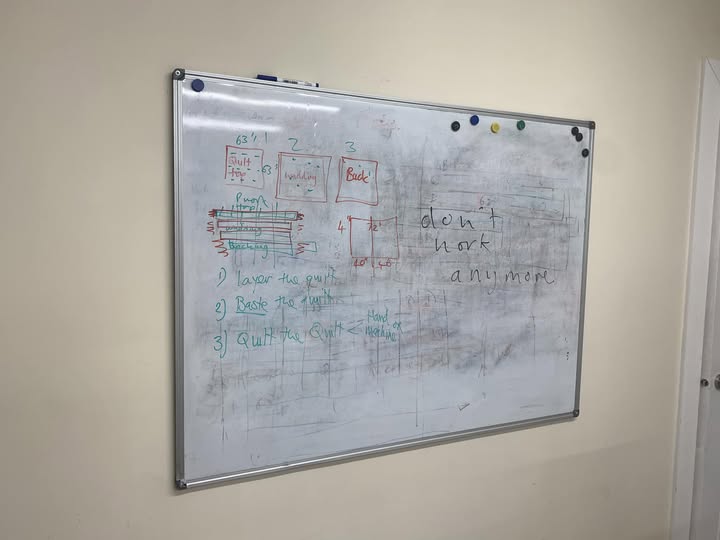 63" 1
2
3
Quilt
top
63"
wadding
Back
top
Backing
4
72"
don't
work
anymore
1) Layer the quilt
2) Baste the quilt
3) Quilt the Quilt < Hand or
machine